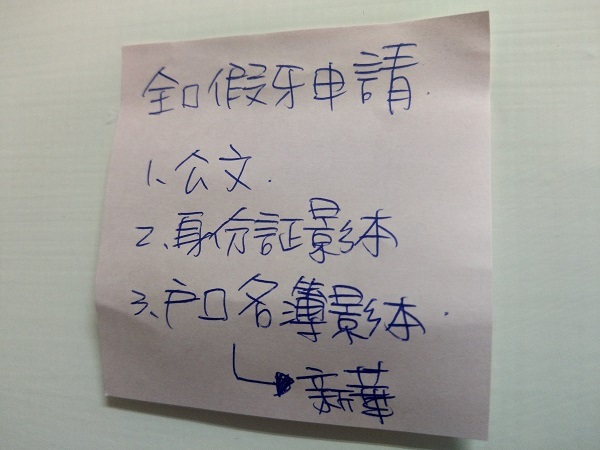 全口假牙申請.
1、公文.
2、身份証影本
3、户口名簿影本.
新華